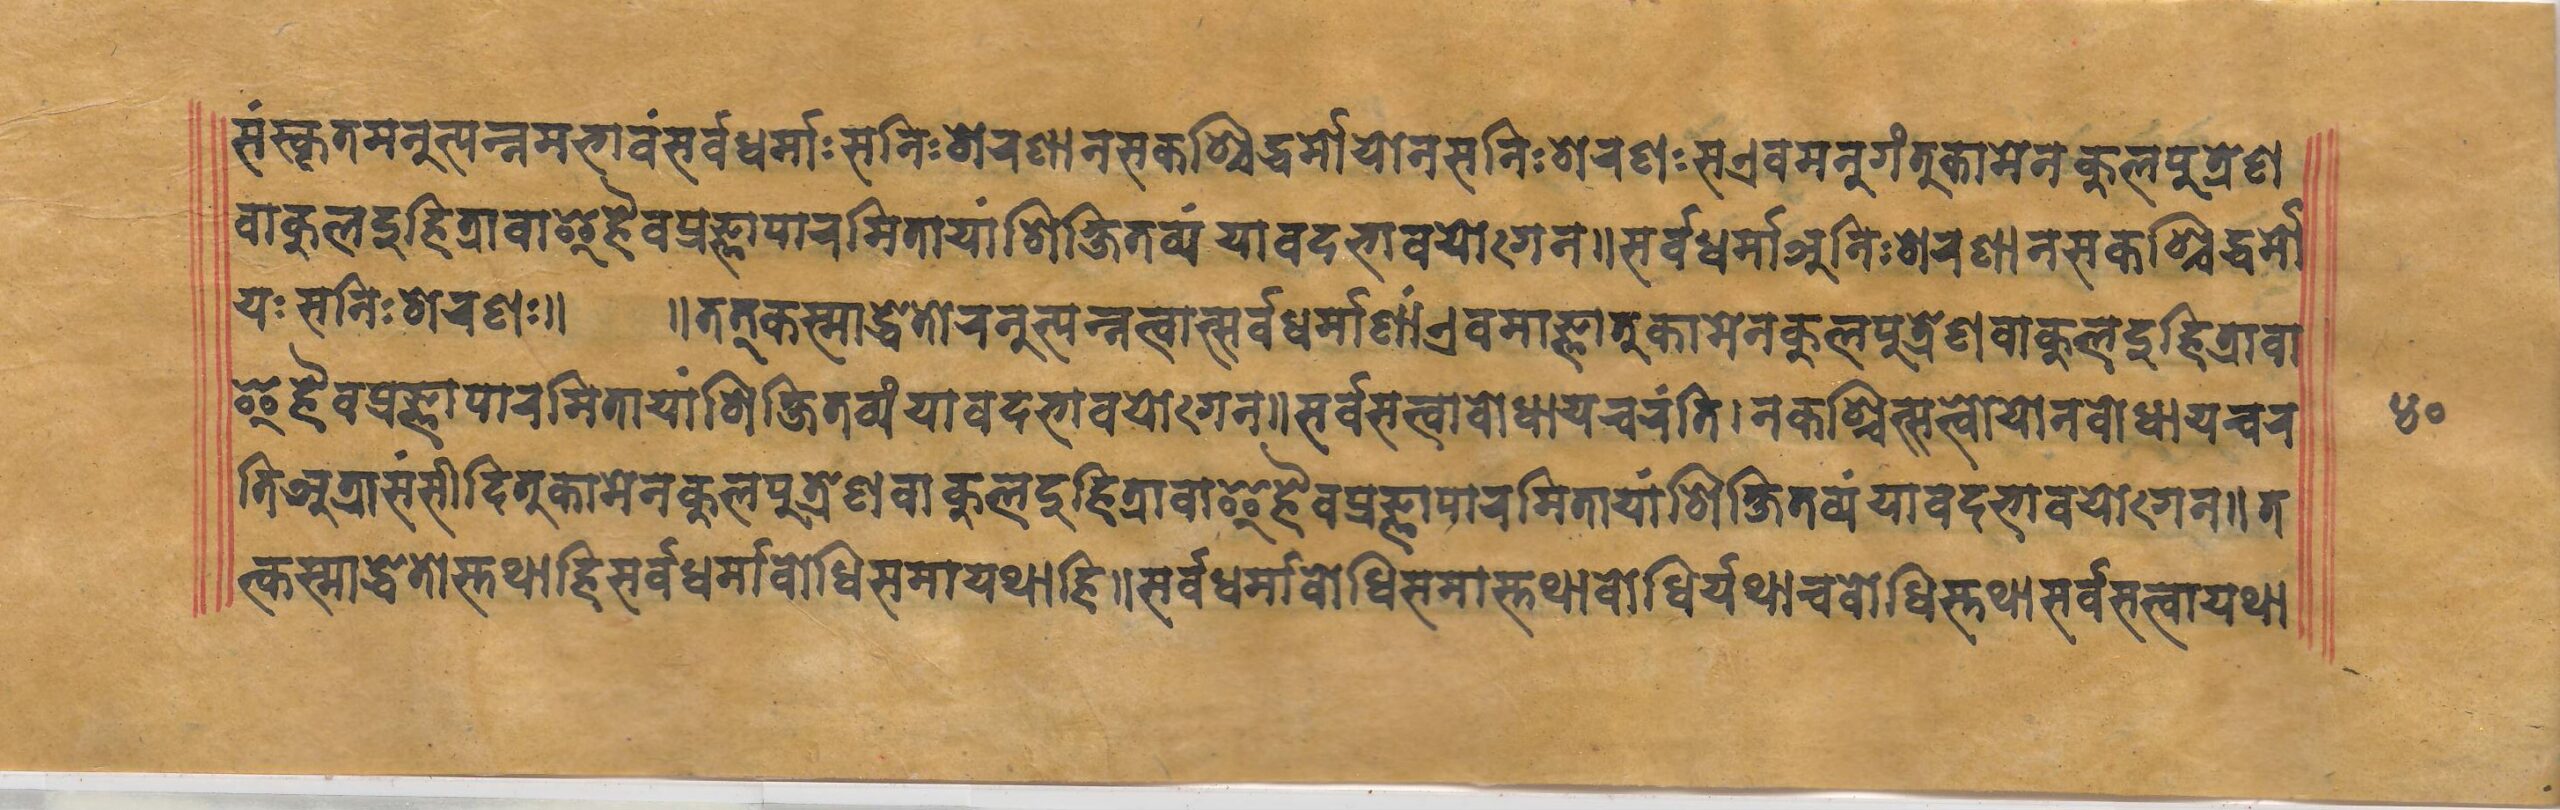 संस्कृतमनुत्पन्नमभावंसर्वधर्माःसनिःशेरणानसकश्चिद्धर्मोयोनसनिःशेरणःसएवमनुगंतुकामेनकुलपुत्रेण
वाकुलदुहित्रावाइहैवप्रज्ञापारमितायांशिक्षितव्यंयावदभावयोगेन॥सर्वधर्माअनिःशेरणानसकश्चिद्धर्मो
यःसनिःशेरणः॥ ॥तत्कस्माद्धेतोरनुत्पन्नत्वात्सर्वधर्माणांएवमाज्ञातुकामेनकुलपुत्रेणवाकुलदुहित्रावा
इहैवप्रज्ञापारमितायांशिक्षितव्यंयावदभावयोगेन॥सर्वसत्वाबोधायचरंति।नकश्चित्सत्वोयोनबोधायचर
तिअत्रासंसीदितुकामेनकुलपुत्रेणवाकुलदुहित्रावाइहैवप्रज्ञापारमितायांशिक्षितव्यंयावदभावयोगेन॥त
त्कस्माद्धेतोस्तथाहिसर्वधर्माबोधिसमायथाहि॥सर्वधर्माबोधिसमास्तथाबोधिर्यथाचबोधिस्तथासर्वसत्वायथा
४०